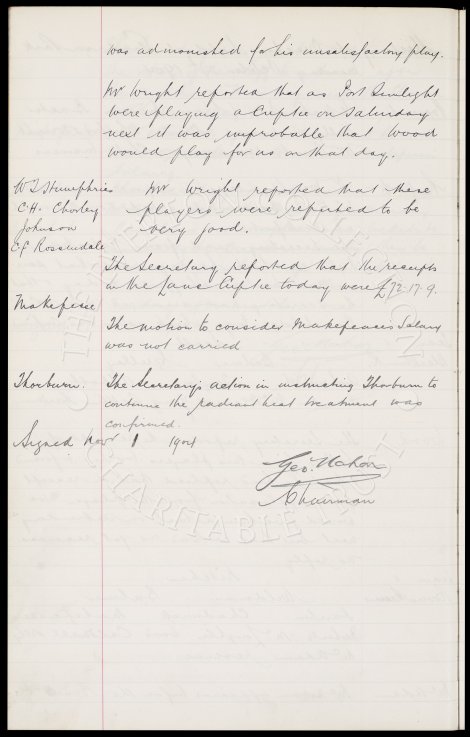 was admonished for his unsatisfactory play.
Mr Wright reported that as Port Sunlight
were playing a Cuptie on Saturday
next it was improbable that Wood
would play for us on that day.
W T S Humphries
C H. Chorley
Johnson
C F Rossendale
Mr Wright reported that these
players were reputed to be
very good.
The Secretary reported that the receipts
in the Lancs Cuptie today were £72.17.9.
Makepeace
The motion to consider Makepeaces Salary
was not carried
Thorburn.
The Secretary's action in instructing Thorburn to
continue the radiant heat treatment was
confirmed.
Signed Novr 1 1904
Geo. Mahon
Chairman
THE EVERTON COLLECTION
CHARITABLE TRUST